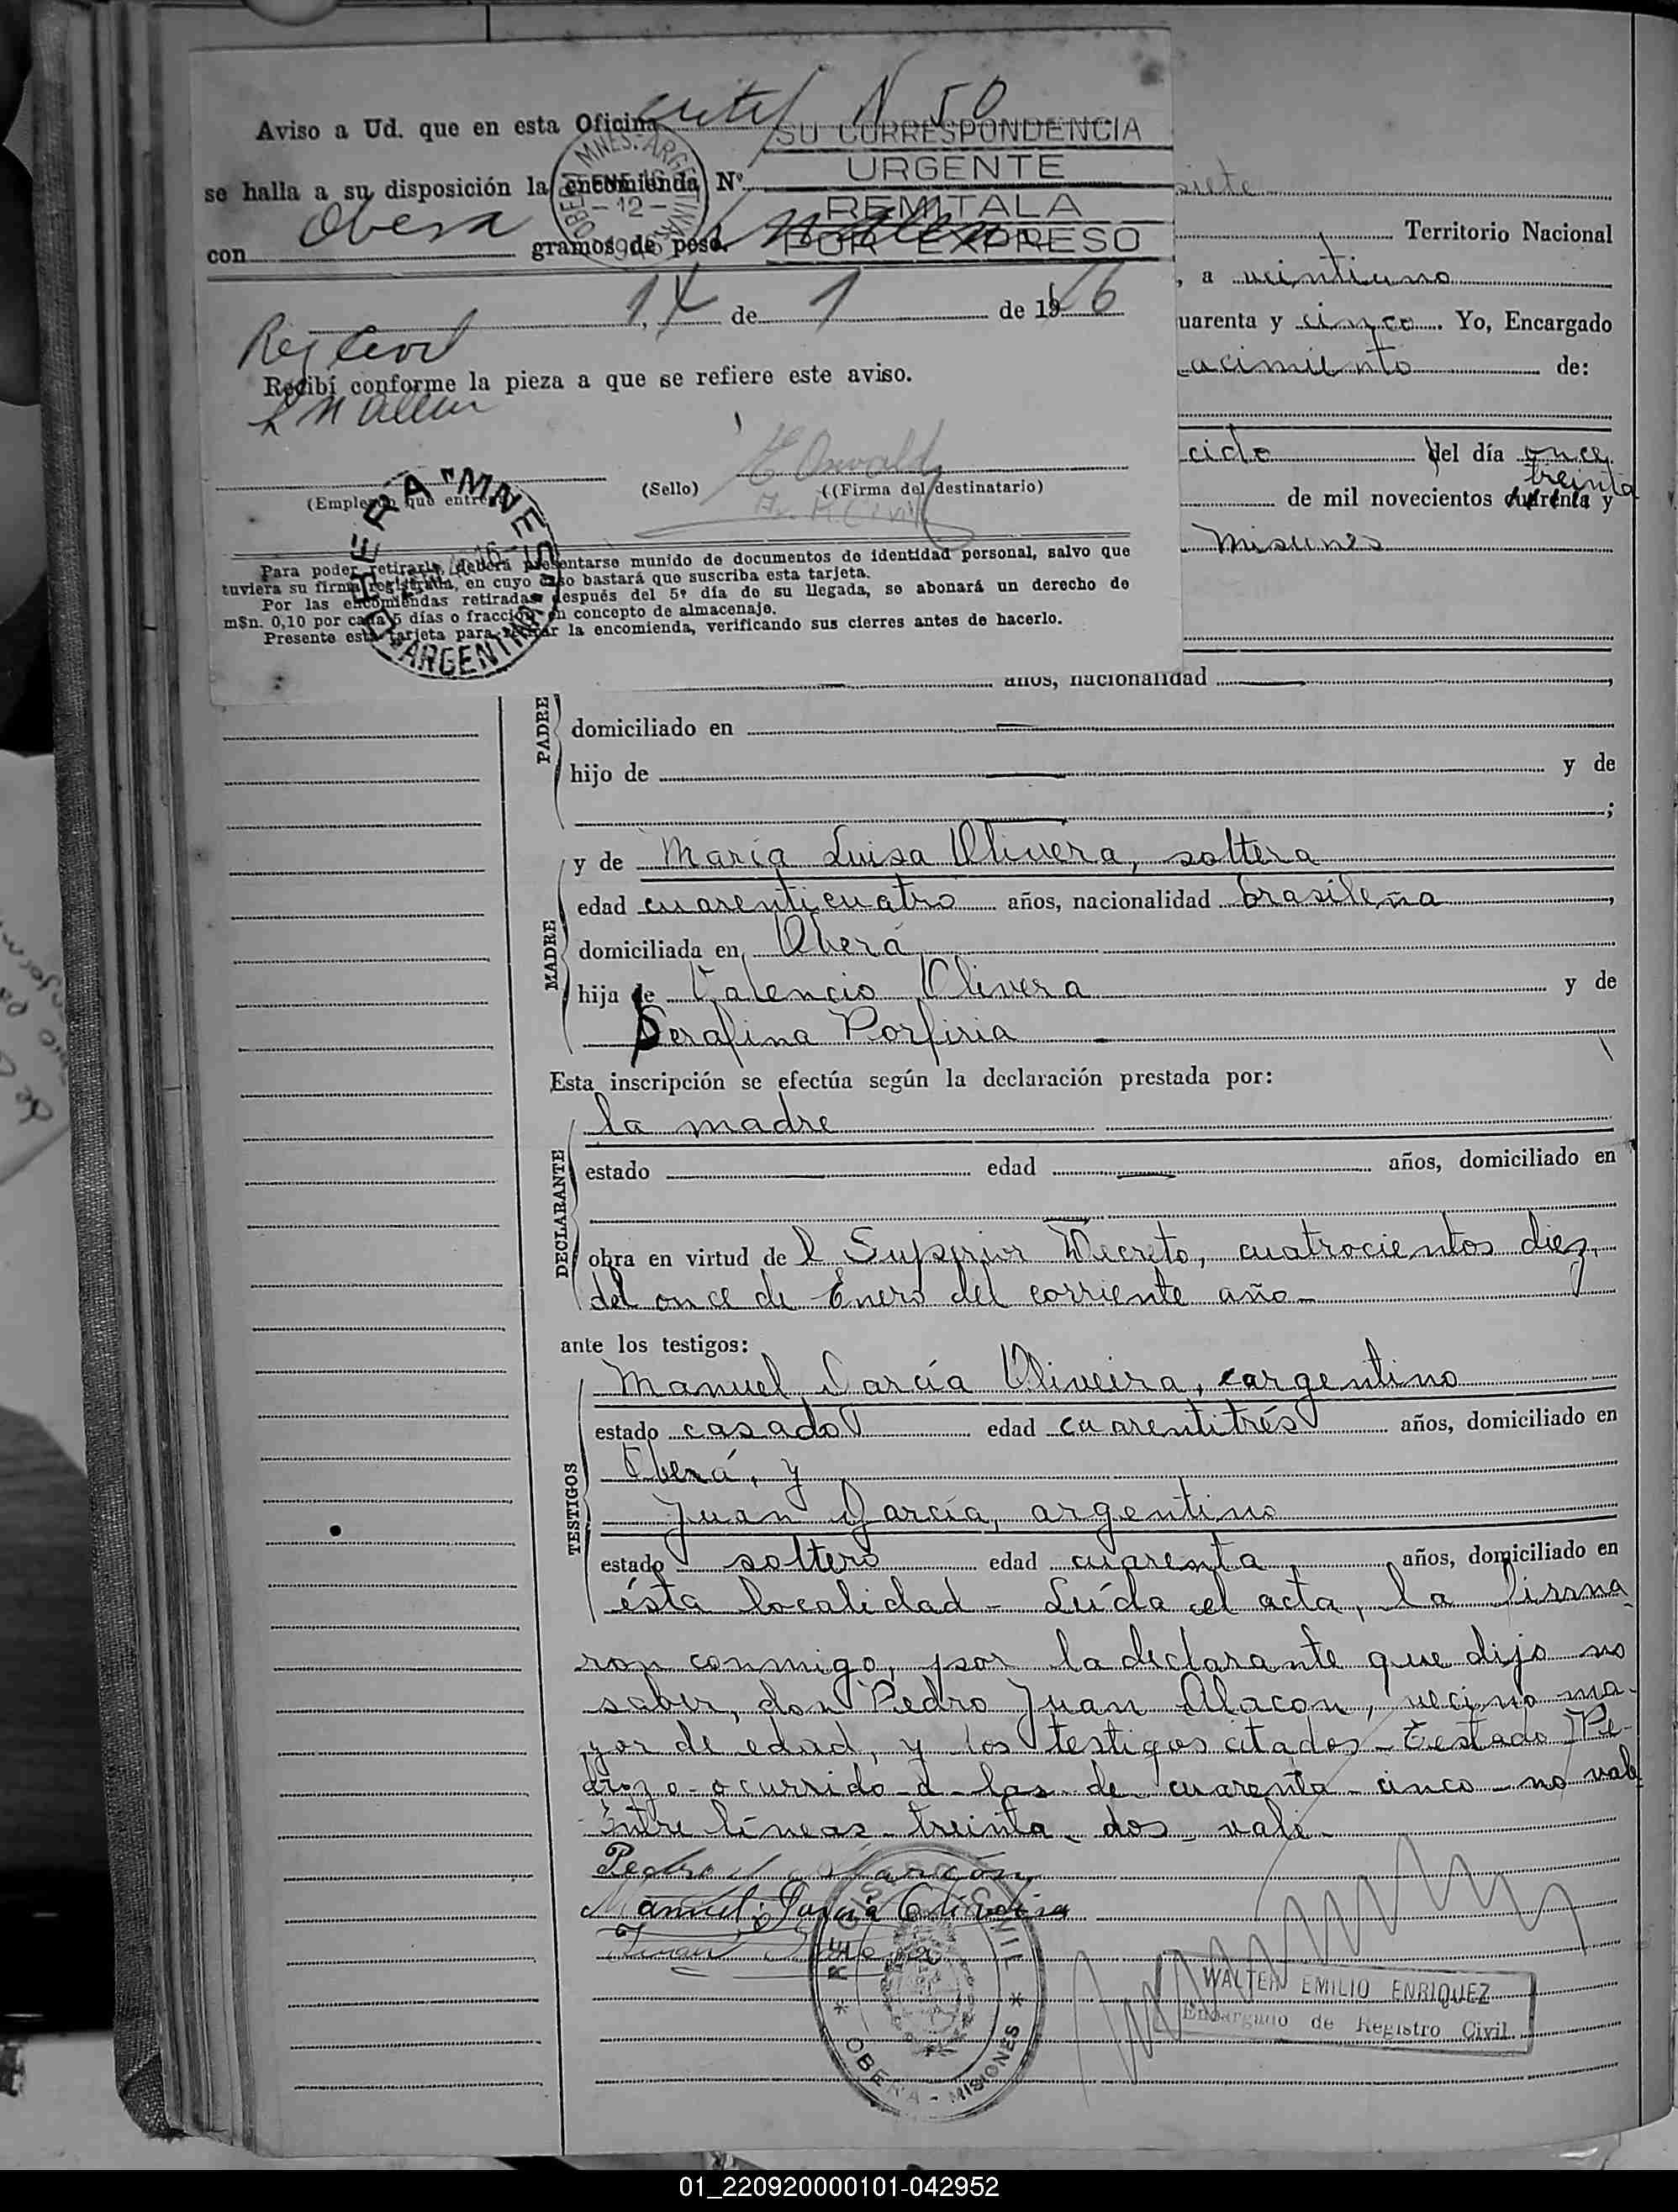 Aviso a Ud. que en esta Oficina N 50
SU CORRESPONDENCIA
URGENTE
REMITALA
POR EXPRESO
se halla a su disposición la encomienda Nº
OBERA MNES. ARGENTINA
ENE 16
- 12 -
con Obera gramos de peso.
14 de 1 de 1946
Reg Civil
Recibí conforme la pieza a que se refiere este aviso.
(Empleado que entrega) (Sello) (Firma del destinatario)
OBERA "MNES"
ARGENTINA
Para poder retirarla, deberá presentarse munido de documentos de identidad personal, salvo que
tuviera su firma registrada, en cuyo caso bastará que suscriba esta tarjeta.
Por las encomiendas retiradas después del 5º día de su llegada, se abonará un derecho de
m$n. 0,10 por cada 5 días o fracción en concepto de almacenaje.
Presente esta tarjeta para retirar la encomienda, verificando sus cierres antes de hacerlo.
siete
Territorio Nacional
, a veintiuno
uarenta y cinco. Yo, Encargado
acimiento de:
cido del día once
treinta
de mil novecientos cuarenta y
Misiones
años, nacionalidad
PADRE
domiciliado en
hijo de y de
;
MADRE
y de María Luisa Olivera, soltera
edad cuarenticuatro años, nacionalidad brasileña
domiciliada en Oberá
hija de Valencio Olivera y de
Serafina Porfiria
Esta inscripción se efectúa según la declaración prestada por:
DECLARANTE
la madre
estado edad años, domiciliado en
obra en virtud de l Superior Decreto, cuatrocientos diez,
del once de Enero del corriente año
ante los testigos:
TESTIGOS
Manuel García Oliveira, argentino
estado casado edad cuarentitrés años, domiciliado en
Oberá, y
Juan García, argentino
estado soltero edad cuarenta años, domiciliado en
ésta localidad - Leída el acta, la firma-
ron conmigo, por la declarante que dijo no
saber, don Pedro Juan Alacon, vecino ma-
yor de edad, y los testigos citados - Testado Pe-
drozo - ocurrido - d - las - de - cuarenta - cinco - no vale
Entre líneas - treinta - dos - vale -
Pedro J Alarcón
Manuel García Oliveira
Juan
REGISTRO CIVIL
* OBERA - MISIONES *
WALTER EMILIO ENRIQUEZ
Encargado de Registro Civil
01_220920000101-042952